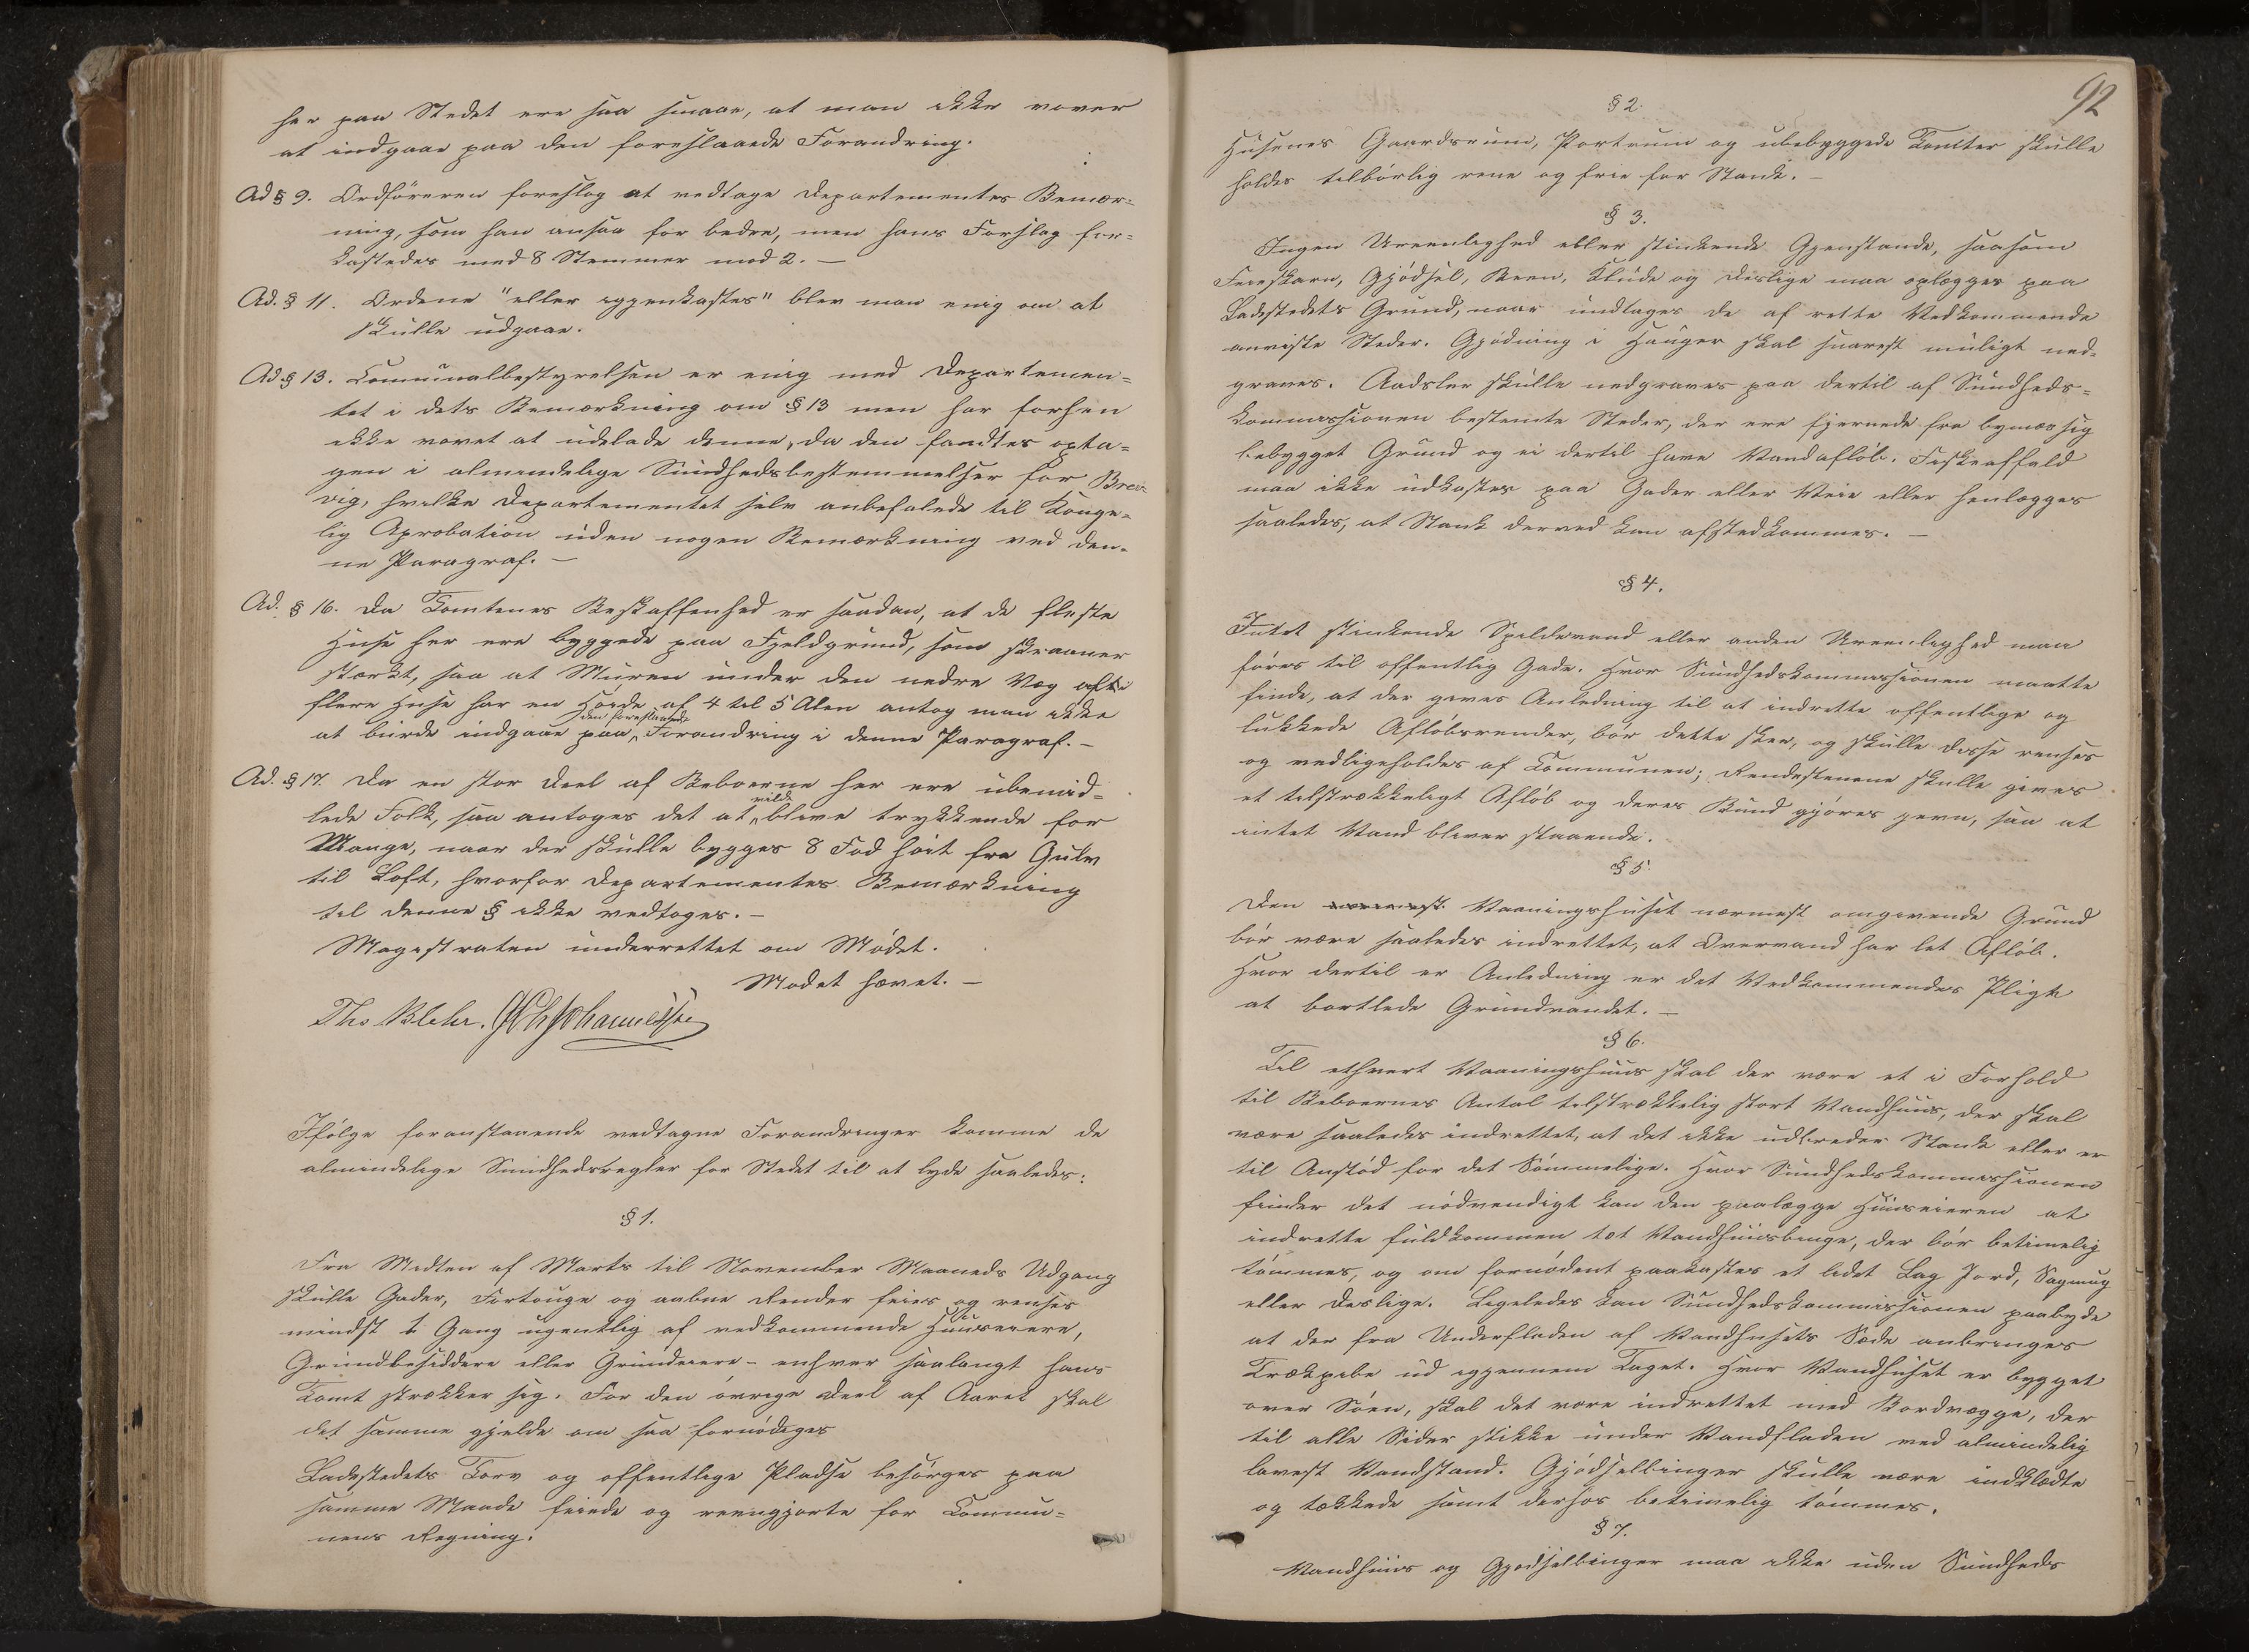 her paa Stedet ere saa smaae, at man ikke vover
at indgaae paa den foreslaaede Forandring.
Ad § 9. Ordføreren foreslog at vedtage Departementes Bemær-
ning, som han ansaa for bedre, men hans Forslag for-
kastedes med 8 Stemmer mod 2. —
Ad. § 11. Ordene "eller igjenkastes" blev man enig om at
skulle udgaae.
Ad § 13. Communalbestyrelsen er enig med Departemen-
tet i dets Bemærkning om § 13 men har forhen
ikke vovet at udelade denne, da den fandtes opta-
gen i almindelige Sundhedsbestemmelser for Bre-
vig, hvilke Departementet selv anbefalede til Konge-
lig Aprobation uden nogen Bemærkning ved den-
ne Paragraf. —
Ad. § 16. Da Tomtenes Beskaffenhed er saadan, at de fleste
Huse her ere byggede paa Fjeldgrund, som skraaner
stærkt, saa at Muren under den nedre Væg af
flere Huse har en Høide af 4 til 5 Alen antog man ikke
den foreslaaede
at burde indgaae paa, Forandring i denne Paragraf. —
Ad. § 17. Da en stor Deel af Beboerne her ere ubemid-
vilde
lede Folk, saa antoges det at blive trykkende for
Mange, naar der skulle bygges 8 Fod høit fra Gulv
til Loft, hvorfor Departementes Bemærkning
til denne § ikke vedtoges. —
Magistraten underrettet om Mødet.
Mødet hævet. —
Ths Blehr. Johannessen
Ifølge foranstaaende vedtagne Forandringer komme de
almindelige Sundhedsregler for Stedet til at lyde saaledes:
§ 1.
Fra Midten af Marts til November Maaneds Udgang
skulle Gader, Fortouge og aabne Render feies og renses
mindst 1 Gang ugentlig af vedkommende Huuseiere,
Grundbesiddere eller Grundeiere – enhver saalangt hans
Tomt strækker sig. For den øvrige Deel af Aaret skal
det samme gjelde om saa fornødiges
Ladestedets Torv og offentlige Pladse besørges paa
samme Maade feiede og reengjorte for Commu-
nens Regning.
92
§ 2.
Husenes Gaardsrum, Portrum og ubebyggede Tomter skulle
holdes tilbørlig rene og frie for Stank. —
§ 3.
Ingen Ureenlighed eller stinkende Gjenstande, saasom
Feieskarn, Gjødsel, Been, Klude og deslige maa oplægges paa
Ladestedets Grund, naar undtages de af rette Vedkommende
anviste Steder. Gjødning i Hauger skal snarest muligt ned-
graves. Aadsler skulle nedgraves paa dertil af Sundheds-
kommissionen bestemte Steder, der ere fjernede fra bymæssig
bebygget Grund og ei dertil have Vandafløb. Fiskeaffald
maa ikke udkastes paa Gader eller Veie eller henlægges
saaledes, at Stank derved kan afstedkommes. —
§ 4.
Intet stinkende Spildevand eller anden Ureenlighed maa
føres til offentlig Gade. Hvor Sundhedskommissionen maatte
finde, at der gives Anledning til at indrette offentlige og
lukkede Afløbsrender, bør dette skee, og skulle disse renses
og vedligeholdes af Communen; Rendestenene skulle gives
et tilstrækkeligt Afløb og deres Bund gjøres jevn, saa at
intet Vand bliver staaende.
§ 5.
Den Vaaningshuset nærmest omgivende Grund
bør være saaledes indrettet, at Overvand har let Afløb.
Hvor dertil er Anledning er det Vedkommendes Pligt
at bortlede Grundvandet. —
§ 6.
Til ethvert Vaaningshuus skal der være et i Forhold
til Beboernes Antal tilstrækkelig stort Vandhuus, der skal
være saaledes indrettet, at det ikke udbreder Stank eller er
til Anstød for det Sømmelige. Hvor Sundhedskommissionen
finder det nødvendigt kan den paalægge Huuseieren at
indrette fuldkommen tæt Vandhuusbinge, der bør betimelig
tømmes, og om fornødent paakastes et lidet Lag Jord, Sagmug
eller deslige. Ligeledes kan Sundhedskommissionen paabyde
at der fra Underfladen af Vandhusets Sæde anbringes
Trækpibe ud igjennem Taget. Hvor Vandhuset er bygget
over Søen, skal det være indrettet med Bordvægge, der
til alle Sider stikke under Vandfladen ved almindelig
lavest Vandstand. Gjødselbinger skulle være indklædte
og tækkede samt derhos betimelig tømmes.
§ 7.
Vandhuus og Gjødselbinger maa ikke uden Sundheds